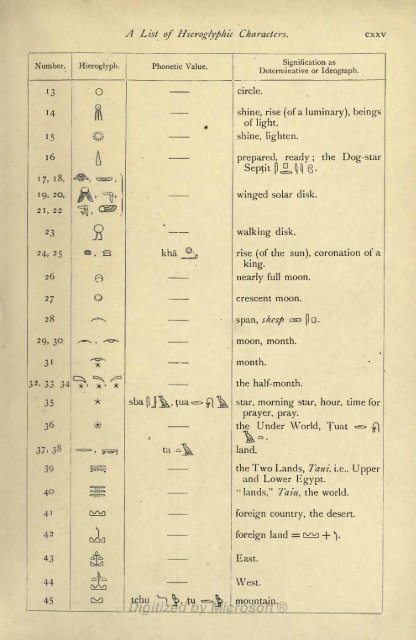 A List of Hieroglyphic Characters. cxxv
Number. Hieroglyph. Phonetic Value. Signification as
Determinative or Ideograph.
13 — circle.
14 — shine, rise (of a luminary), beings
of light.
15 — shine, lighten.
16 — prepared, ready; the Dog-star
Septit
17, 18,
19, 20, — winged solar disk.
21, 22
23 — walking disk.
24, 25 khā rise (of the sun), coronation of a
king.
26 — nearly full moon.
27 — crescent moon.
28 — span, shesp
29, 30 — moon, month.
31 — month.
32, 33 34 — the half-month.
35 sba , ṭua star, morning star, hour, time for
prayer, pray.
36 — the Under World, Ṭuat
37, 38 ta land.
39 — the Two Lands, Taui, i.e., Upper
and Lower Egypt.
40 — "lands," Taiu, the world.
41 — foreign country, the desert.
42 — foreign land = +
43 — East.
44 — West.
45 tchu , ṭu mountain.
Digitized by Microsoft ®